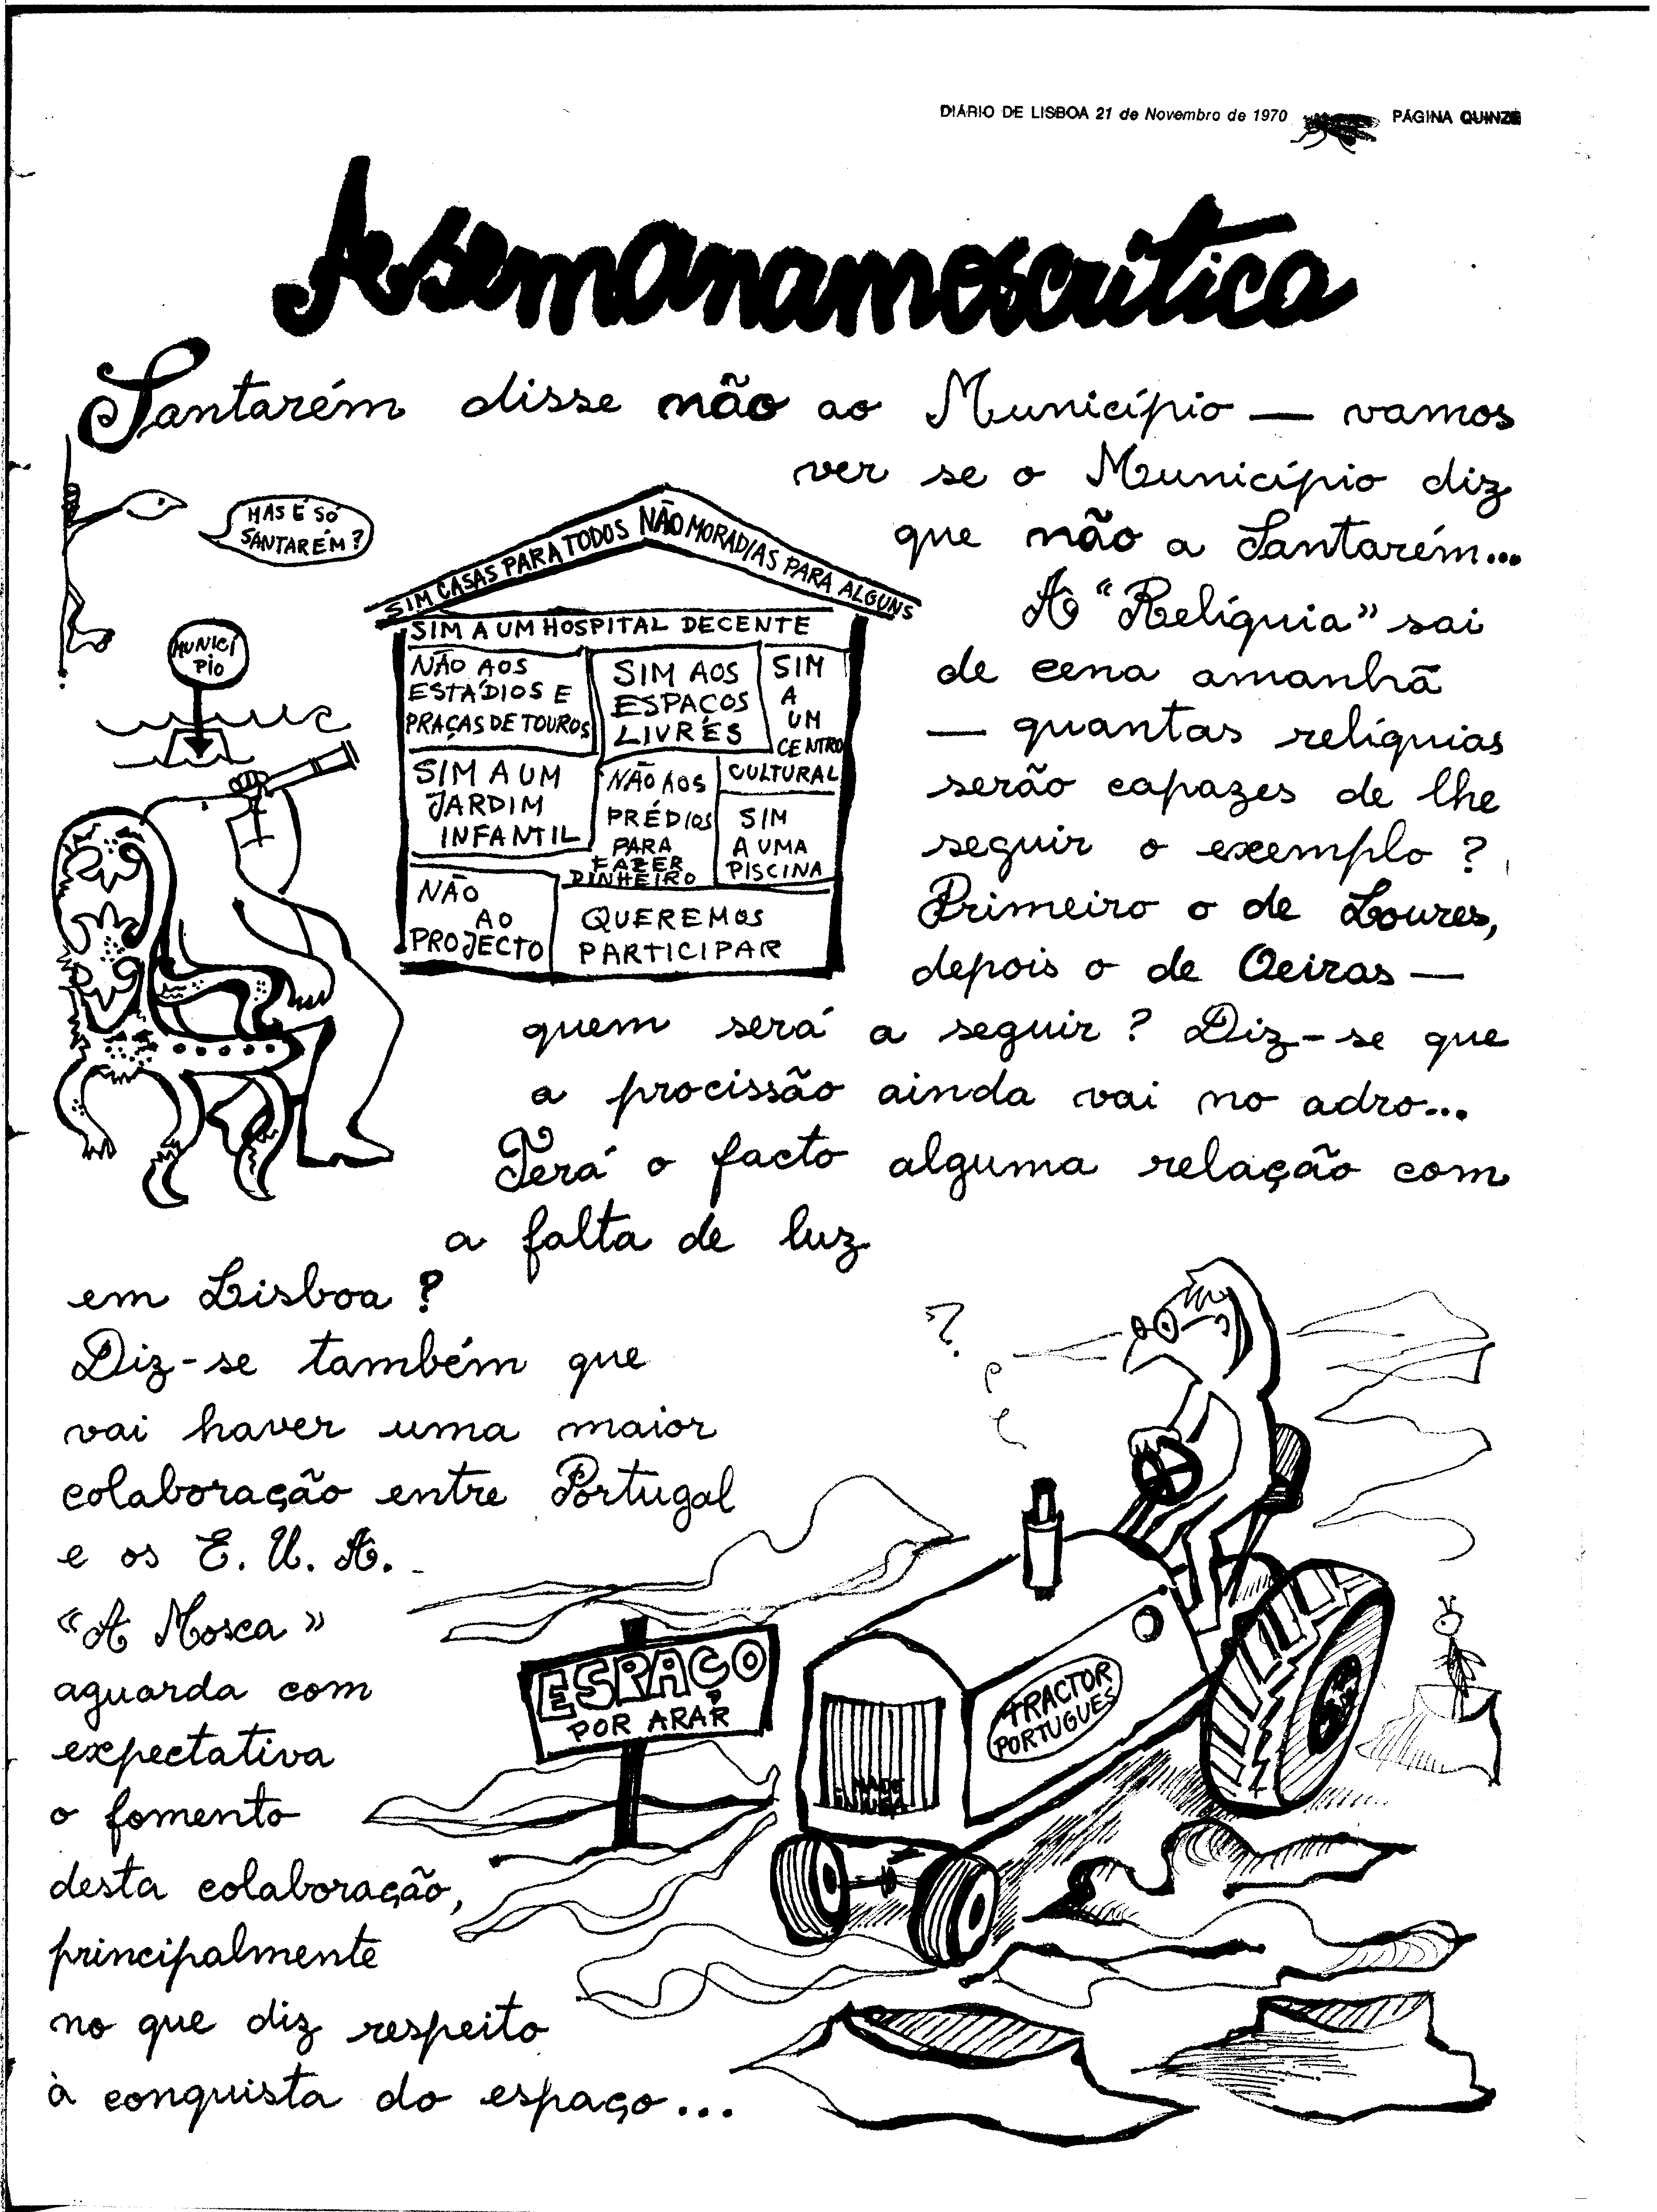 DIÁRIO DE LISBOA 21 de Novembro de 1970 PÁGINA QUINZE
A semanamoscritica
Santarém disse não ao Município — vamos
ver se o Município diz
que não a Santarém...
A "Relíquia" sai
de cena amanhã
— quantas relíquias
serão capazes de lhe
seguir o exemplo?
Primeiro o de Loures,
depois o de Oeiras —
quem será a seguir? Diz-se que
a procissão ainda vai no adro...
Terá o facto alguma relação com
a falta de luz
em Lisboa?
Diz-se também que
vai haver uma maior
colaboração entre Portugal
e os E. U. A. -
"A Mosca"
aguarda com
expectativa
o fomento
desta colaboração,
principalmente
no que diz respeito
à conquista do espaço...
MAS É SÓ
SANTARÉM?
MUNICÍ
PIO
SIM CASAS PARA TODOS NÃO MORADIAS PARA ALGUNS
SIM A UM HOSPITAL DECENTE
NÃO AOS
ESTÁDIOS E
PRAÇAS DE TOUROS
SIM AOS
ESPAÇOS
LIVRES
SIM
A
UM
CENTRO
CULTURAL
SIM A UM
JARDIM
INFANTIL
NÃO AOS
PRÉDIOS
PARA
FAZER
DINHEIRO
SIM
A UMA
PISCINA
NÃO
AO
PROJECTO
QUEREMOS
PARTICIPAR
?
ESPAÇO
POR ARAR
TRACTOR
PORTUGUÊS
MADE
IN USA